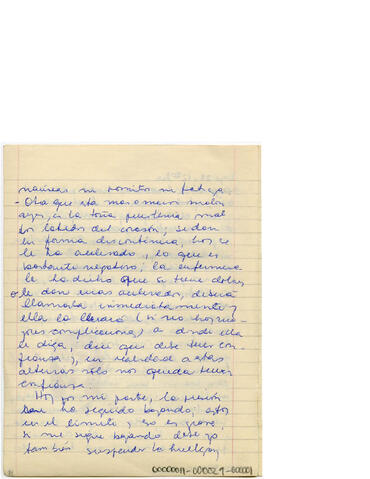 náuseas ni vómitos ni fatiga
- Otra que está más o menos mal
ayer, a la persistencia mal
los latidos del corazón; se dan
en forma discontinua, hoy se
le ha acelerado, lo que es
bastante negativo; la enfermera
le ha dicho que si tiene dolor,
o le dan unas acelerados, debería
llamarla inmediatamente y
ella la llevará (si no hoy
complicaciones) a donde ella
le diga, dice que debe tener con-
fianza), en realidad a estas
alturas sólo nos queda tener
confianza.
Hoy por mi parte, la presión
ha seguido bajando; estoy
en el límite y eso es grave,
si me sigue bajando debo yo
también suspender la huelga,
0000001-000029-000001